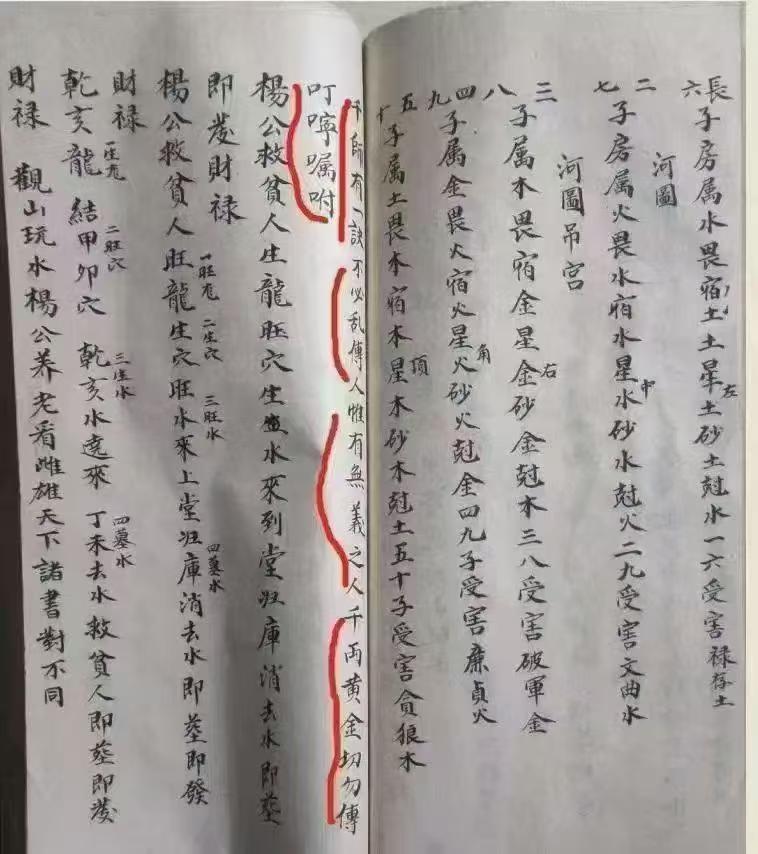 長子房属水畏宿土土星土砂土尅水一六受害禄存土
六
左
河圖
二子房属火畏水宿水星水砂水尅火二九受害文曲水
七
中
河圖吊宮
三子属木畏宿金星金砂金尅木三八受害破軍金
八
右
四子属金畏火宿火星火砂火尅金四九子受害廉貞火
九
角
五子属土畏木宿木星木砂木尅土五十子受害貪狼木
十
頂
師有一訣不必乱傳人惟有無義之人千両黄金切勿傳
叮嚀嘱咐
楊公救貧人生龍旺穴生水來到堂归庫消去水即塟
即发財禄
一旺龙 二生穴 三旺水 四墓水
楊公救貧人旺龍生穴旺水來上堂归庫消去水即塟即發
財禄
二旺穴 三生水 四墓水
乾亥龍 結甲卯穴 乾亥水遠來 丁未去水救貧人即塟即发
財禄 觀山玩水楊公养老看雌雄天下諸書對不同